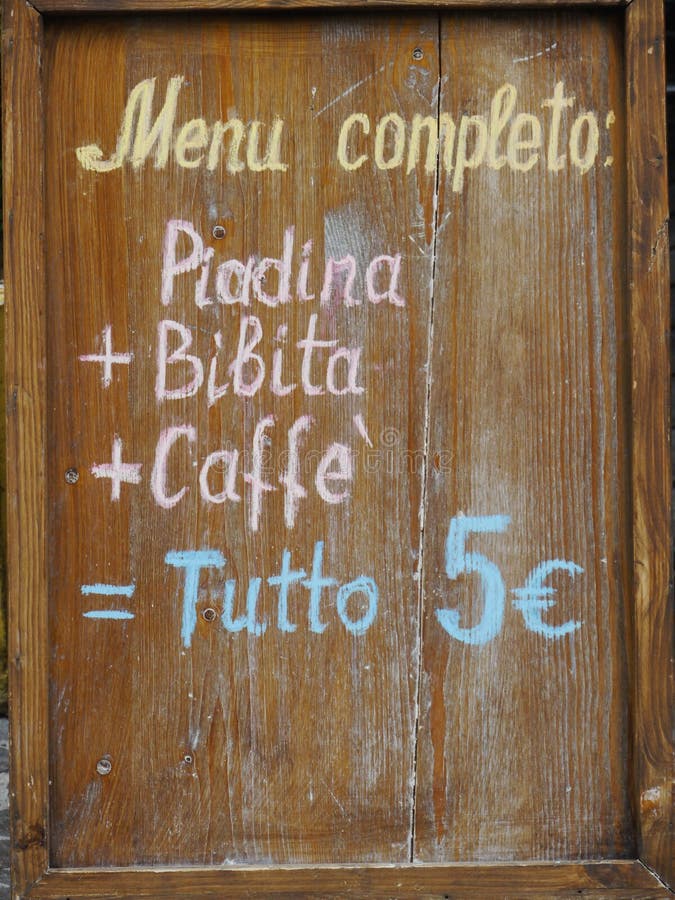 Menu completo:
Piadina
+ Bibita
+ Caffè
= Tutto 5€